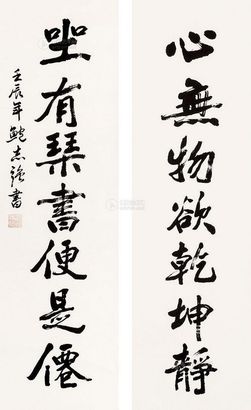 心無物欲乾坤靜
坐有琴書便是僊
壬辰年鮑志強書